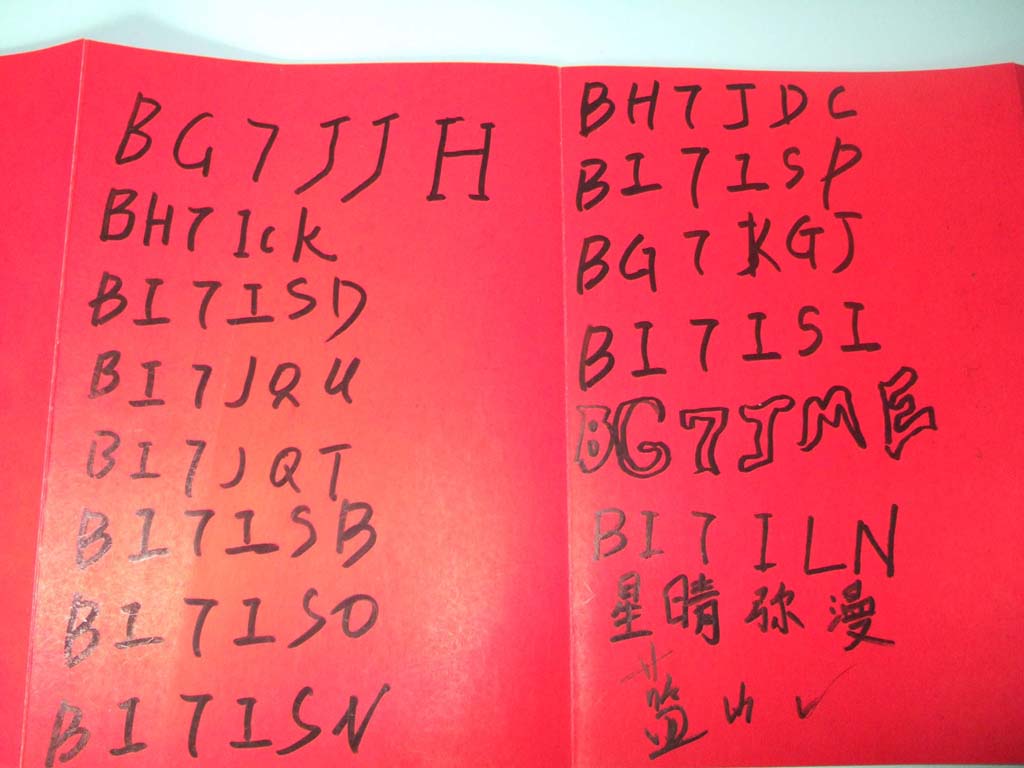 BG7JJH
BH7ICK
BI7ISD
BI7JQU
BI7JQT
BI7ISB
BI7ISO
BI7ISN
BH7JDC
BI7ISP
BG7KGJ
BI7ISI
BG7JME
BI7ILN
星晴弥漫
蓝山